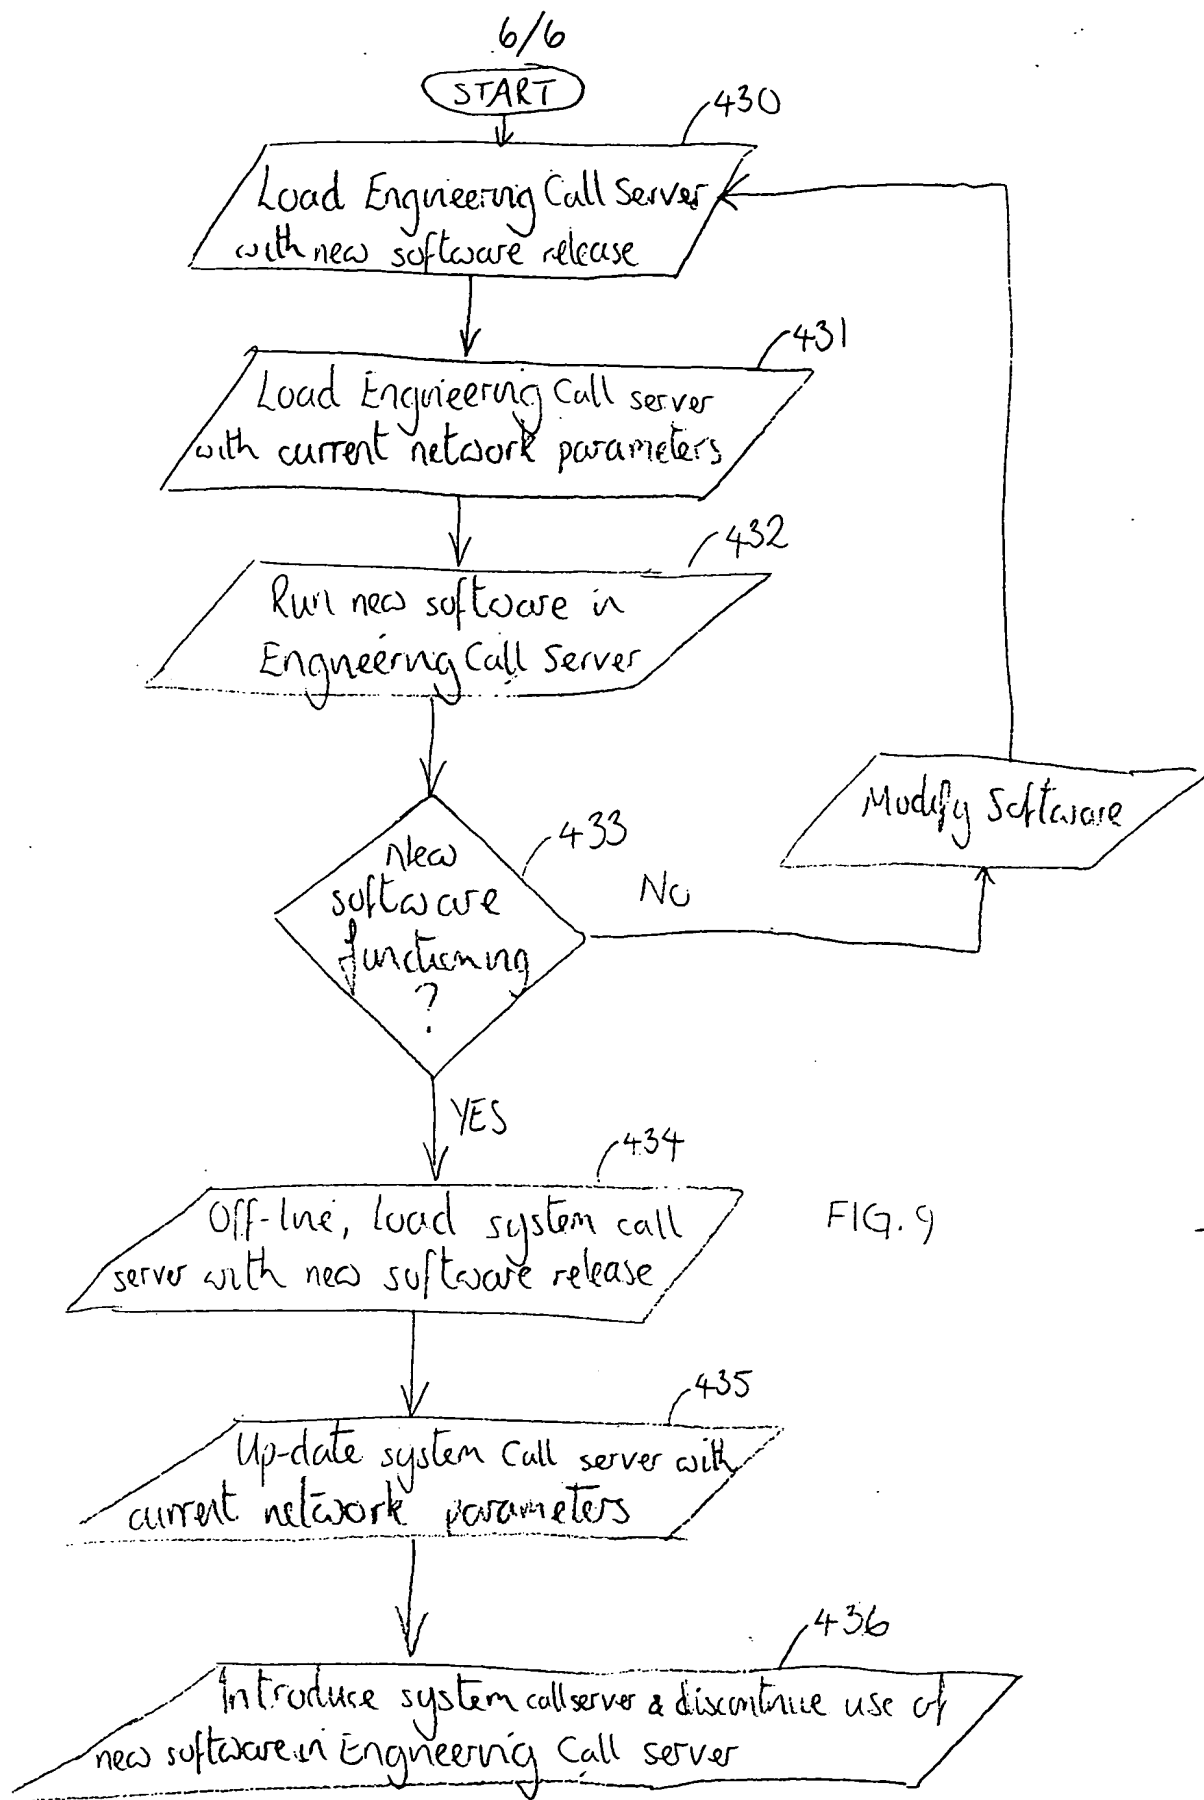 6/6
START
430
Load Engineering Call Server
with new software release
431
Load Engineering Call server
with current network parameters
432
Run new software in
Engineering Call Server
Modify Software
433
New
software
functioning
?
NO
YES
434
Off-line, load system call
server with new software release
FIG. 9
435
Up-date system call server with
current network parameters
436
Introduce system call server & discontinue use of
new software in Engineering Call server